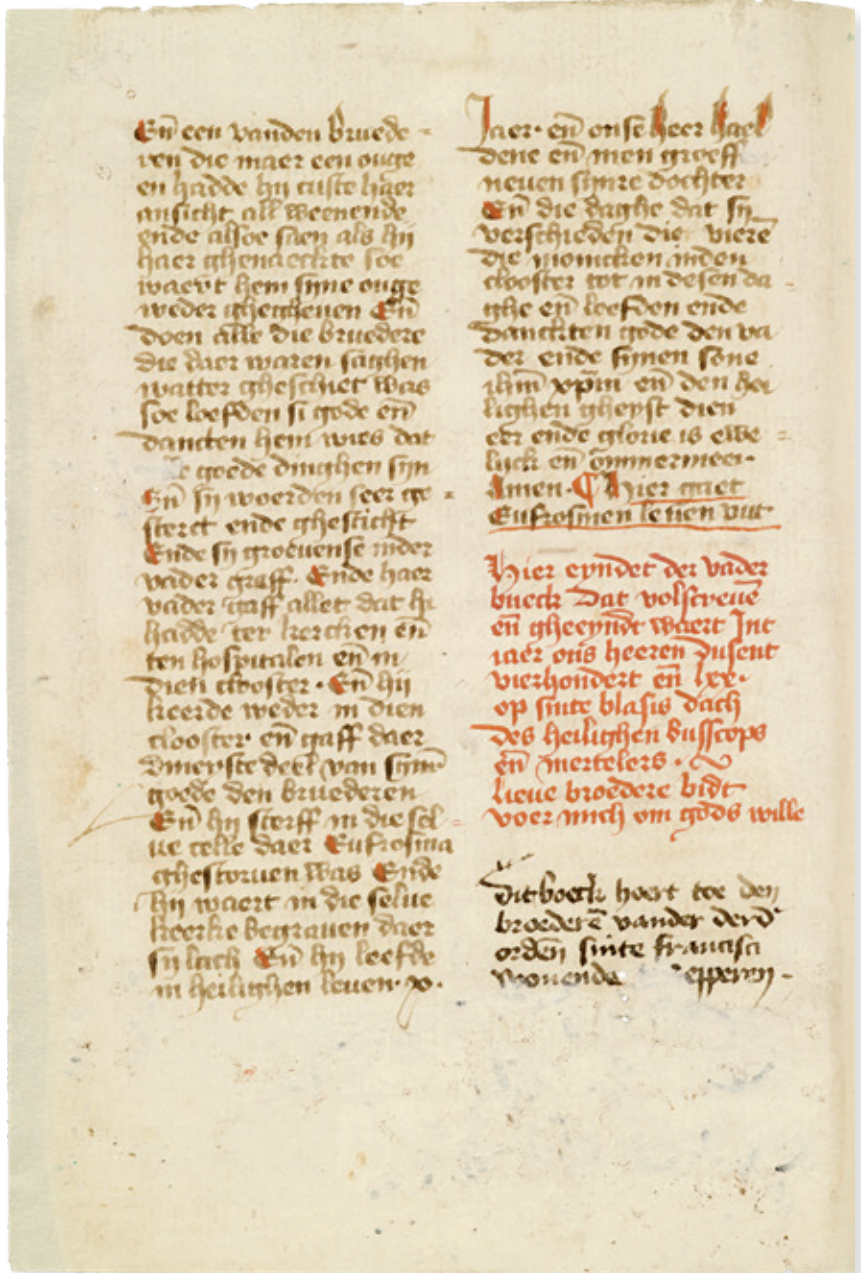 En̄ een vanden bruede
ren die maer een ouge
en hadde hy custe haer
ansicht all weenende
ende alsoe saen als hy
haer ghenaeckte soe
waert hem sijne ouge
weder ghegheuen En̄
doen alle die bruedere
die daer waren saghen
watter gheschiet was
soe loefden si gode en̄
dancten hem wies dat
goede dinghen sijn
En̄ sy woerden seer ge
sterct ende ghesticht
Ende sy groeuense inder
vader graff. Ende haer
vader gaff allet dat hi
hadde ter kercken en̄
ten hospitalen en̄ in
dien clooster. En̄ hy
keerde weder in dien
clooster en̄ gaff daer
dmeyste deel van sijnē
goede den bruederen
En̄ hy sterff in die sel
ue celle daer Eufrosina
ghestoruen was Ende
hy waert in die selue
keerke begrauen daer
sy lach En̄ hy leefde
in heilighen leuen x.
Jaer. en̄ onse heer hael
dene en̄ men groeff
neuen sijnre dochter
En̄ die daghe dat sy
verschieden die vierē
die moncken inden
clooster tot in desen da
ghe en̄ loefden ende
danckten gode den va
der ende sijnen sone
ihm̄ xpm̄ en̄ den hei
lighen gheyst dien
eer ende glorie is ewe
lyck en̄ ōmmermeer.
Amen. Hier gaet
Eufrosinen leuen vut
Hier eyndet der vader
bueck dat volscreuē
en̄ gheeyndt waert Int
iaer ons heeren dusent
vierhondert en̄ lxx.
op sinte blasis dach
des heilighen busscops
en̄ mertelers.
lieue broedere bidt
voer mich om gods wille
Dit boeck hoert toe den
broederē vander derd'
ordēn sinte francisci
wonende